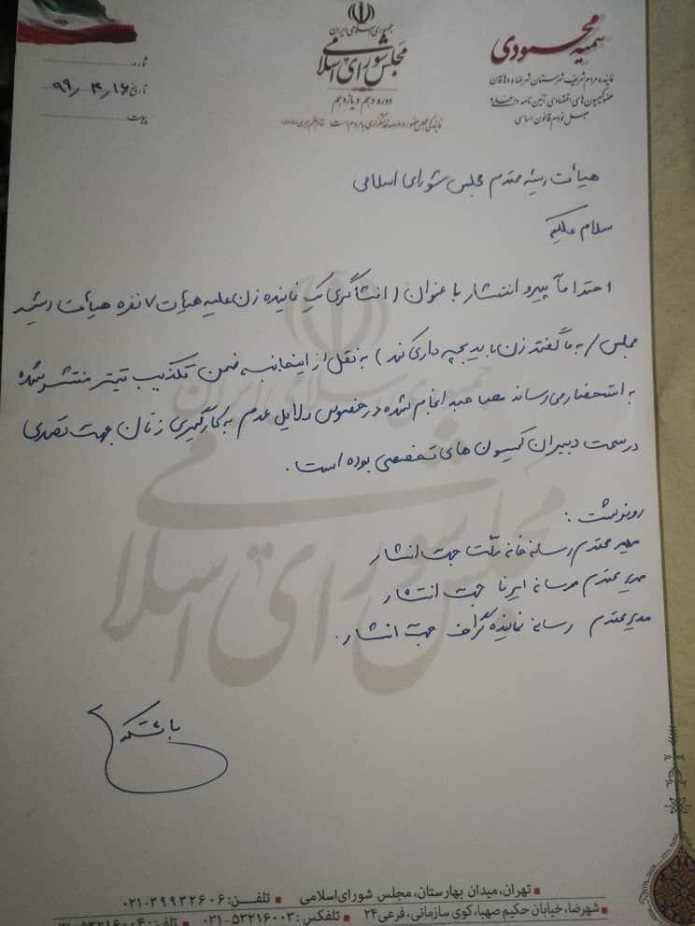 جمهوری اسلامی ایران
مجلس شورای اسلامی
دوره دهم و یازدهم
سمیه محمودی
نماینده مردم شریف شهرستان شهرضا و دهاقان
عضو کمیسیون‌های اقتصادی، آیین نامه داخلی و
اصل نودم قانون اساسی
شماره:
تاریخ: ۹۹٫۴٫۱۶
پیوست:
هیأت رئیسه محترم مجلس شورای اسلامی
سلام علیکم
احتراماً پیرو انتشار با عنوان (افشاگری یک نماینده زن علیه هیأت ۷ نفره هیأت رئیسه
مجلس / به ما گفتند زن باید بچه داری کند) به نقل از اینجانبه ضمن تکذیب تیتر منتشر شده
به استحضار می رساند مصاحبه انجام شده در خصوص دلایل عدم به کارگیری زنان جهت تصدی
در سمت دبیران کمیسیون های تخصصی بوده است.
رونوشت:
مدیر محترم رسانه خانه ملت جهت انتشار
مدیر محترم رسانه ایرنا جهت انتشار
مدیر محترم رسانه نماینده گراف جهت انتشار.
با تشکر
جمهوری اسلامی ایران
مجلس شورای اسلامی
تهران، میدان بهارستان، مجلس شورای اسلامی ▪ تلفن: ۰۲۱-۳۹۹۳۲۶۰۶
شهرضا، خیابان حکیم صهبا، کوی سازمانی، فرعی ۲۴ ▪ تلفکس: ۰۲۱-۵۳۲۱۶۰۰۳